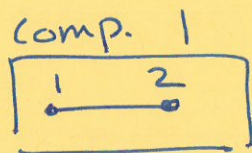 Comp. 1
1 2